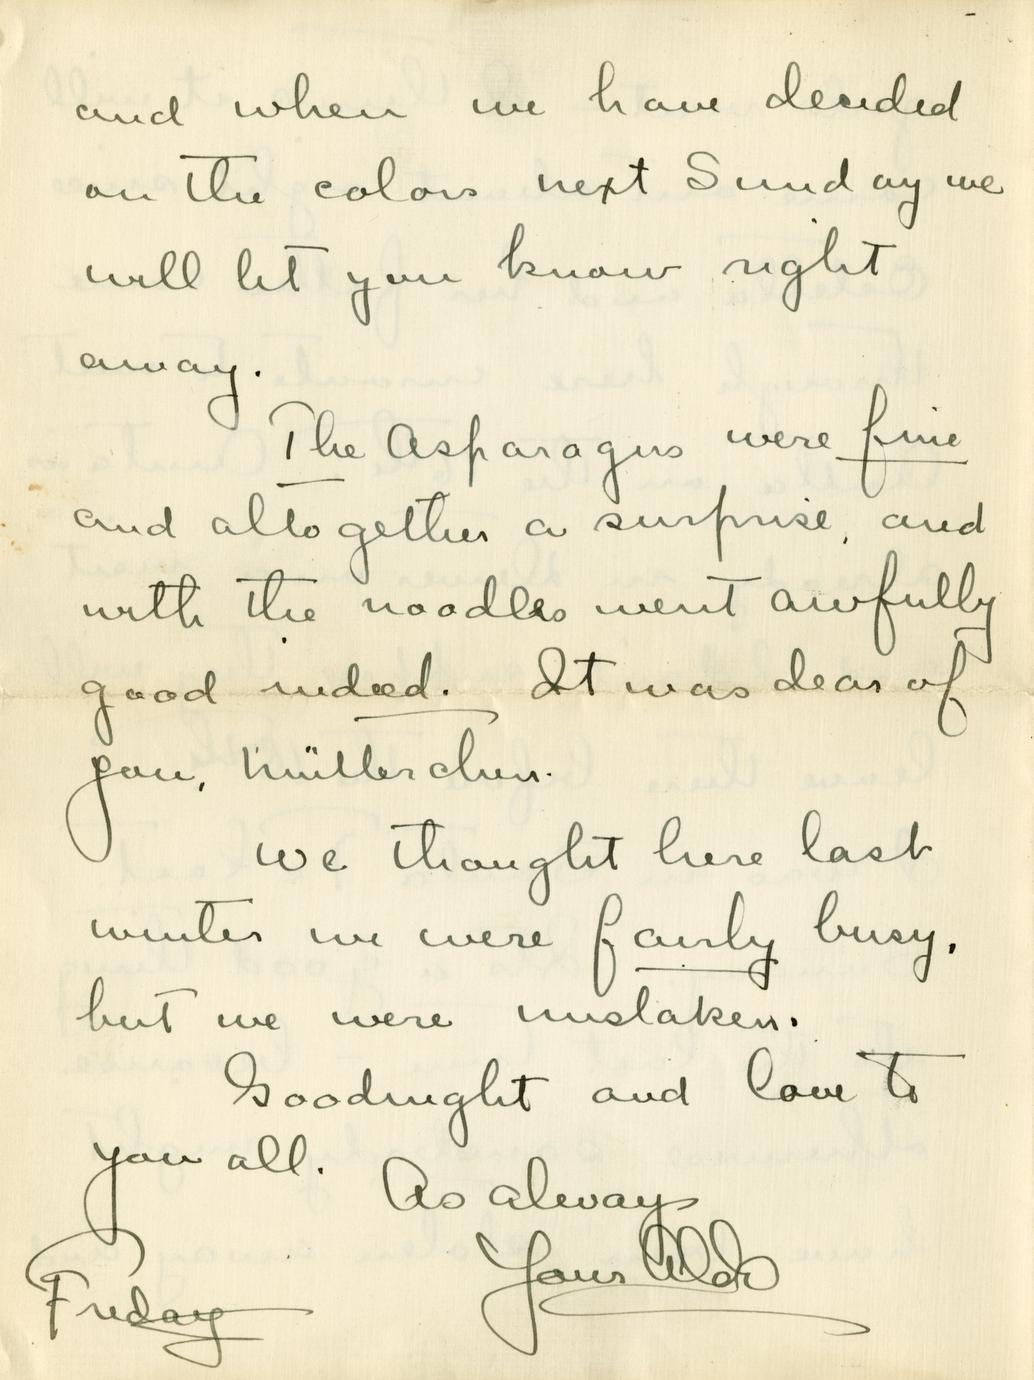 and when we have decided
on the colors next Sunday we
will let you know right
away.
The Asparagus were fine
and altogether a surprise, and
with the noodles went awfully
good indeed. It was dear of
you, Mütterchen.
We thought here last
winter we were fairly busy,
but we were mistaken.
Goodnight and love to
you all.
As always
Your Aldo
Friday